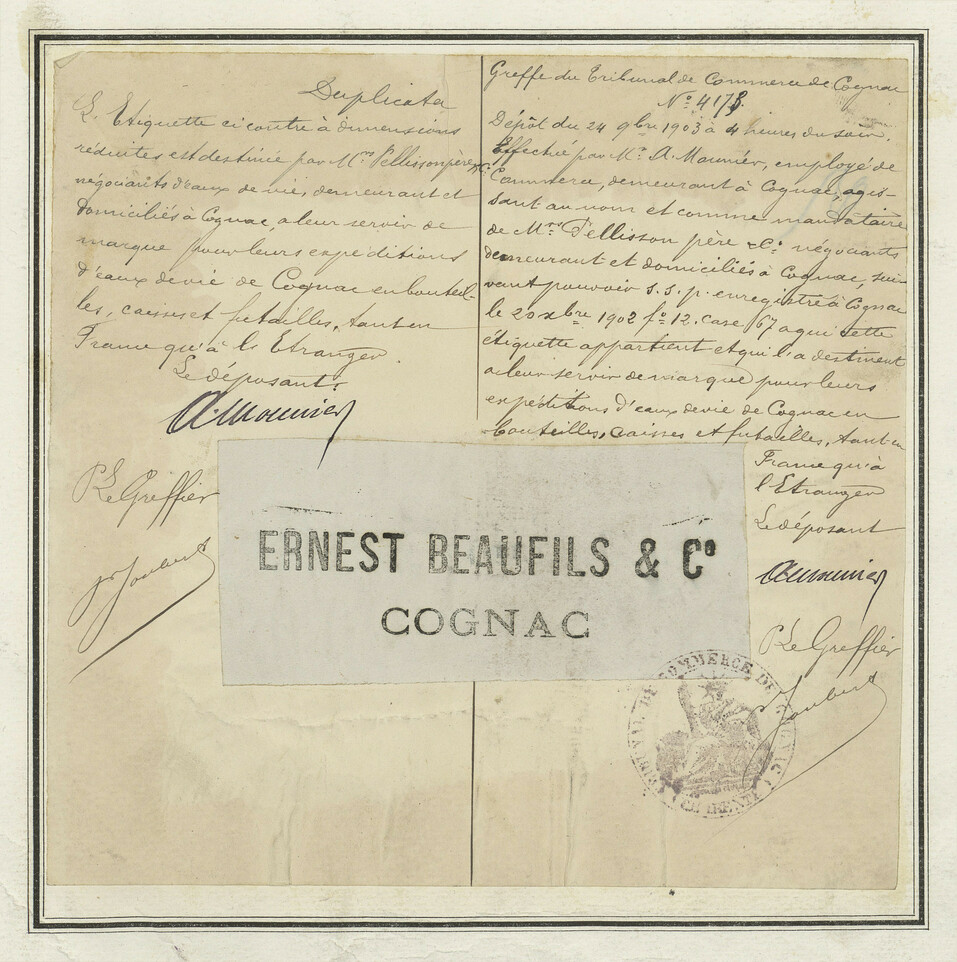 Duplicata
L'Etiquette ci contre à dimensions
réduites est destinée par Mrs Pellisson père & Co
négociants d'eaux de vie, demeurant et
domiciliés à Cognac, a leur servir de
marque pour leurs expéditions
d'eaux de vie de Cognac en bouteil-
les, caisses et futailles, tant en
France qu'à l'Etranger.
Le déposant:
A. Mounier
Pr Le Greffier
Joubert
Greffe du Tribunal de Commerce de Cognac
No 4178.
Dépôt du 24 9bre 1903 à 4 heures du soir,
Effectué par Mr A. Mounier, employé de
Commerce, demeurant à Cognac, agis-
sant au nom et comme mandataire
de Mrs Pellisson père & Co négociants
demeurant et domiciliés à Cognac, sui-
vant pouvoir s.s.p. enregistré à Cognac
le 20 xbre 1902 fo 12. case 67 a qui cette
étiquette appartient et qui l'a destinent
a leur servir de marque pour leurs
expéditions d'eaux de vie de Cognac en
bouteilles, caisses et futailles, tant en
France qu'à
l'Etranger
Le déposant
A. Mounier
Pr Le Greffier
Joubert
ERNEST BEAUFILS & Co
COGNAC
TRIBUNAL DE COMMERCE DE COGNAC
(CHARENTE)